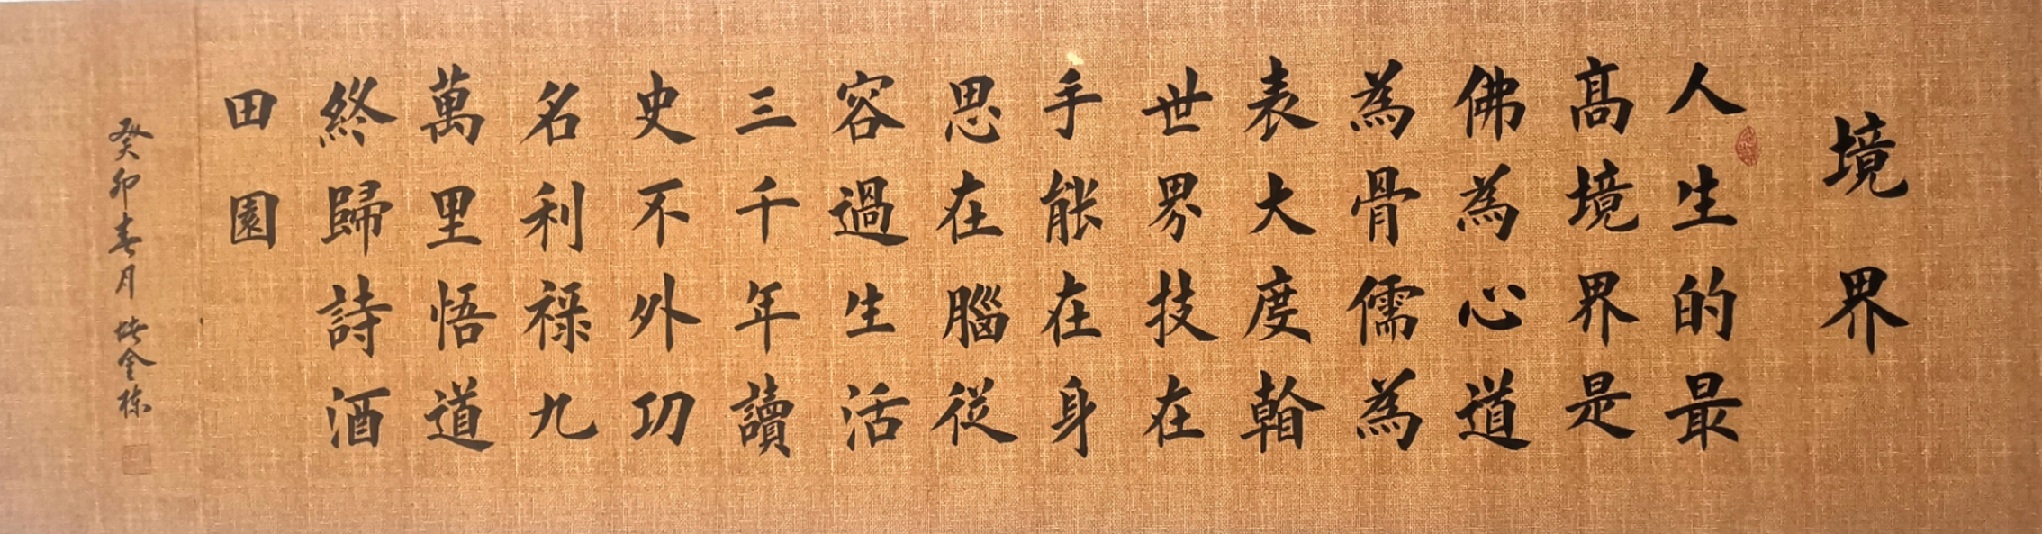 境界
人生的最
高境界是
佛為心道
為骨儒為
表大度翰
世界技在
手能在身
思在腦從
容過生活
三千年讀
史不外功
名利祿九
萬里悟道
終歸詩酒
田園
癸卯春月 金栋